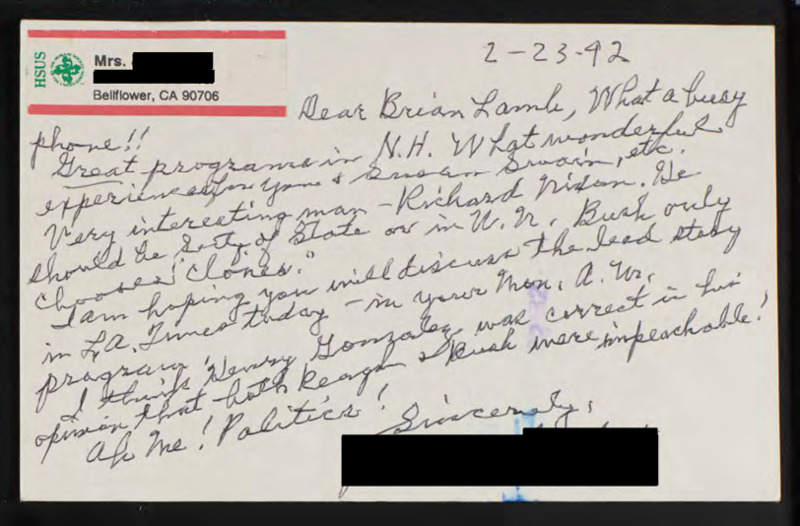 HSUS
Mrs.
Bellflower, CA 90706
2-23-92
Dear Brian Lamb, What a busy
phone!!
Great programs in N.H. What wonderful
experiences for you & Susan Swain, etc.
Very interesting man - Richard Nixon. He
should be Secty of State or in U.N. Bush only
chooses "Clones."
I am hoping you will discuss the lead story
in L.A. Times today - in your Mon. A.M.
program!
I think Henry Gonzalez was correct in his
opinion that both Reagan & Bush were impeachable!
Ah Me! Politics!
Sincerely,